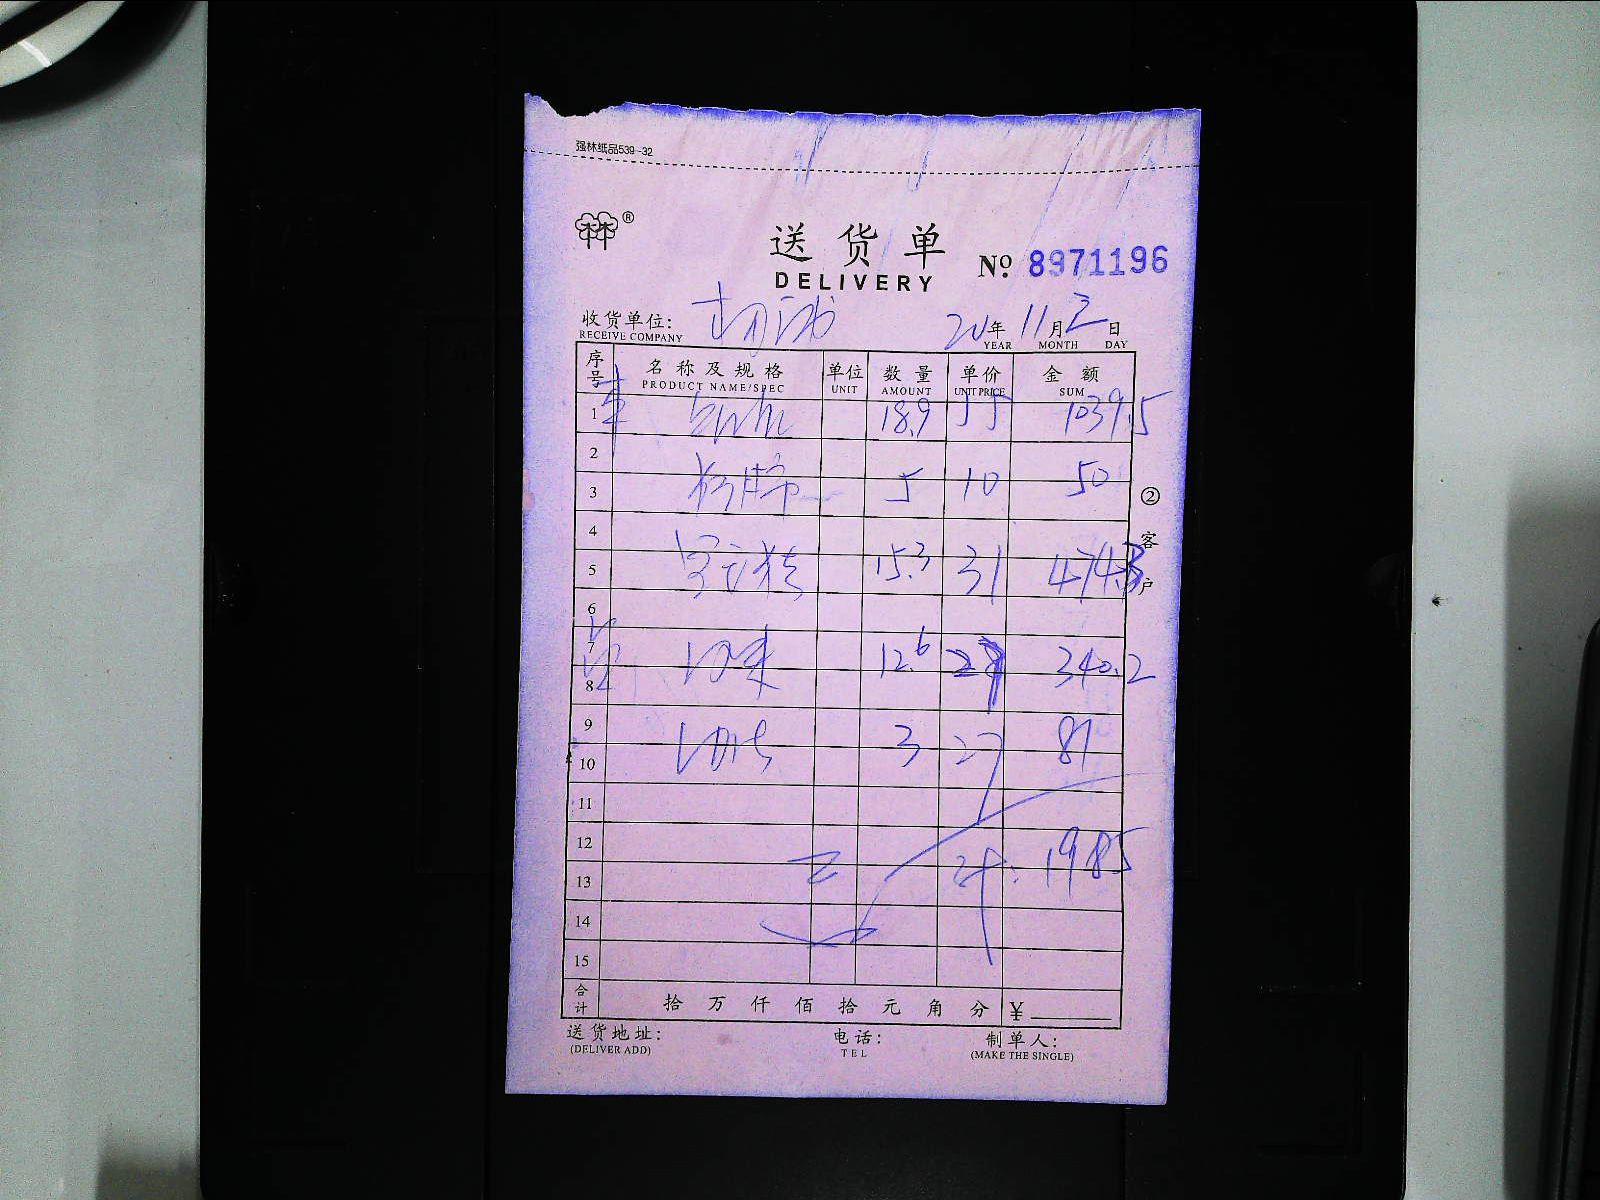 强林纸品539-32
®
送货单
DELIVERY
№ 8971196
收货单位:
RECEIVE COMPANY
年 11月 三日
YEAR MONTH DAY
序号 名称及规格 单位 数量 单价 金额
PRODUCT NAME/SPEC UNIT AMOUNT UNIT PRICE SUM
1 18.9 55 1039.5
2
3 5 10 50
4
5 15.3 31 474.3
6
7 12.6 27 340.2
8
9 3 27 81
10
11
12 1985
13
14
15
合计 拾万仟佰拾元角分 ¥
送货地址: 电话: 制单人:
(DELIVER ADD) TEL (MAKE THE SINGLE)
②客户